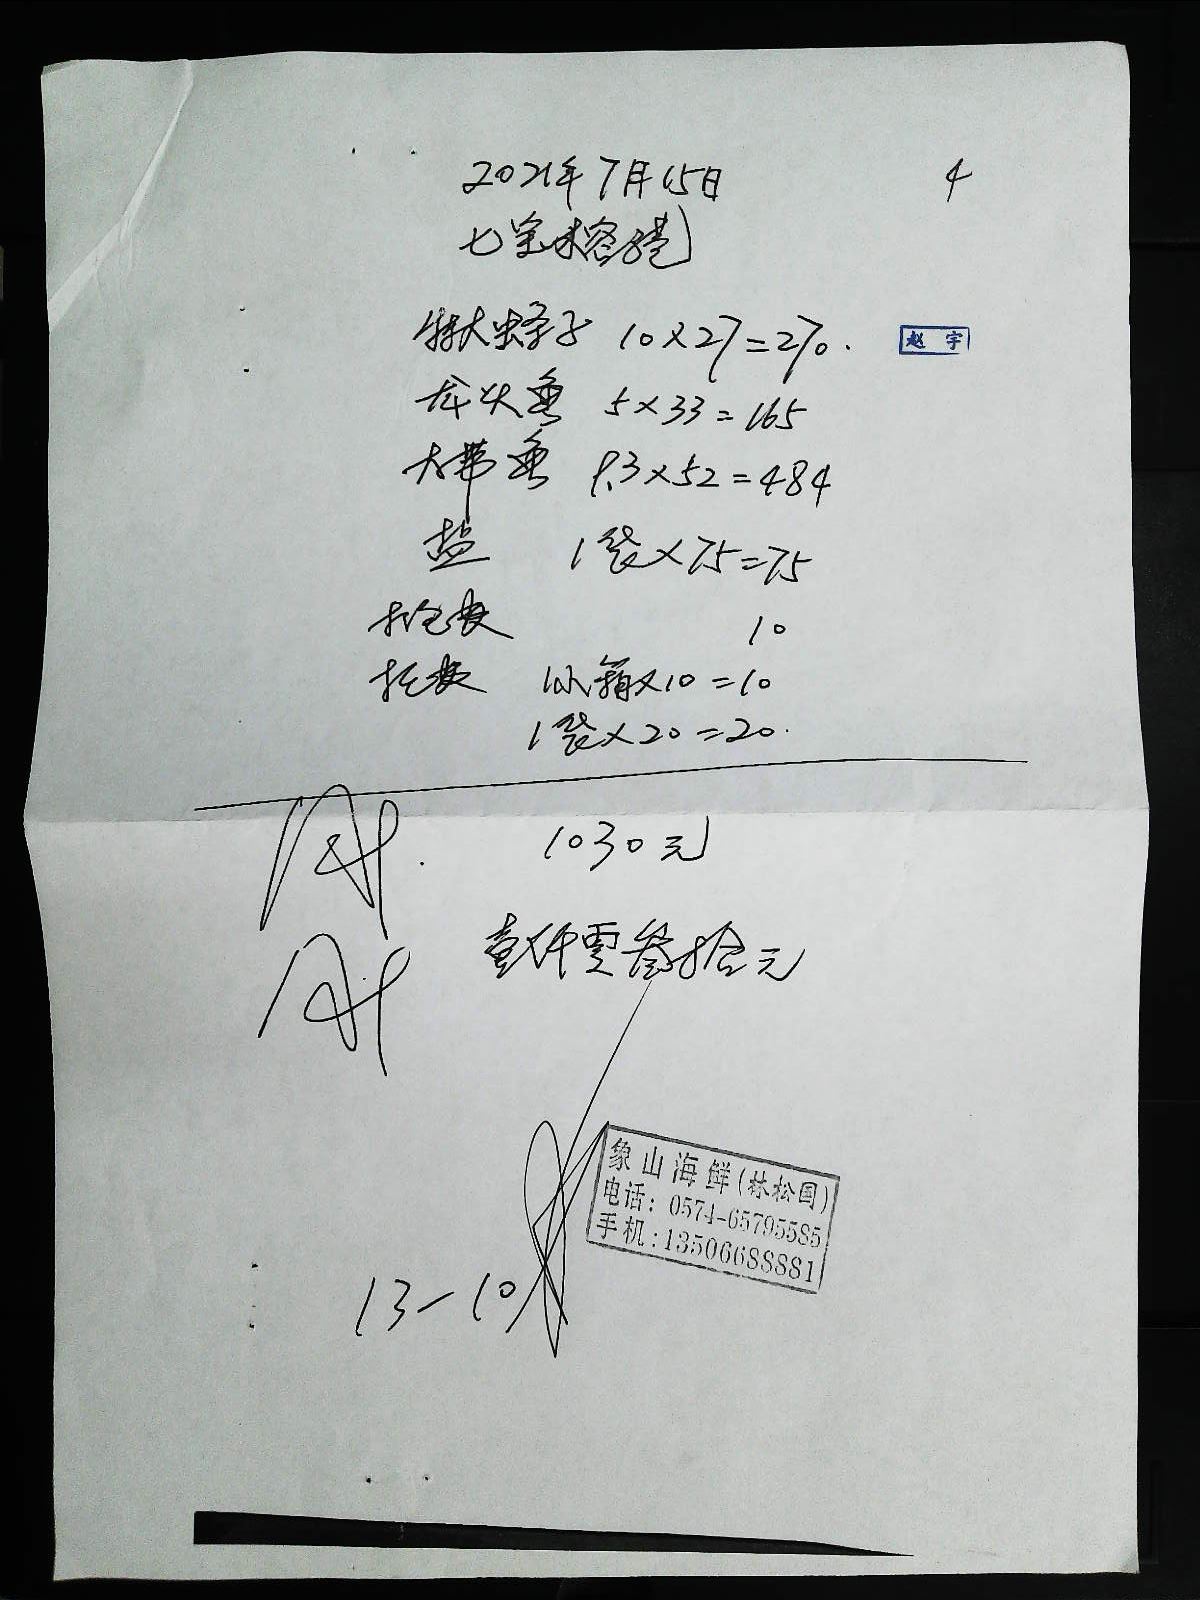 2021年7月15日
4
七宝
特大蛏子 10×27=270.
赵宇
龙头鱼 5×33=165
大带鱼 9.3×52=484
盐 1袋×75=75
打包费 10
托费 1小箱×10=10
1袋×20=20.
1030元
壹仟零叁拾元
象山海鲜(林松国)
电话: 0574-65795585
手机:13506688881
13-10